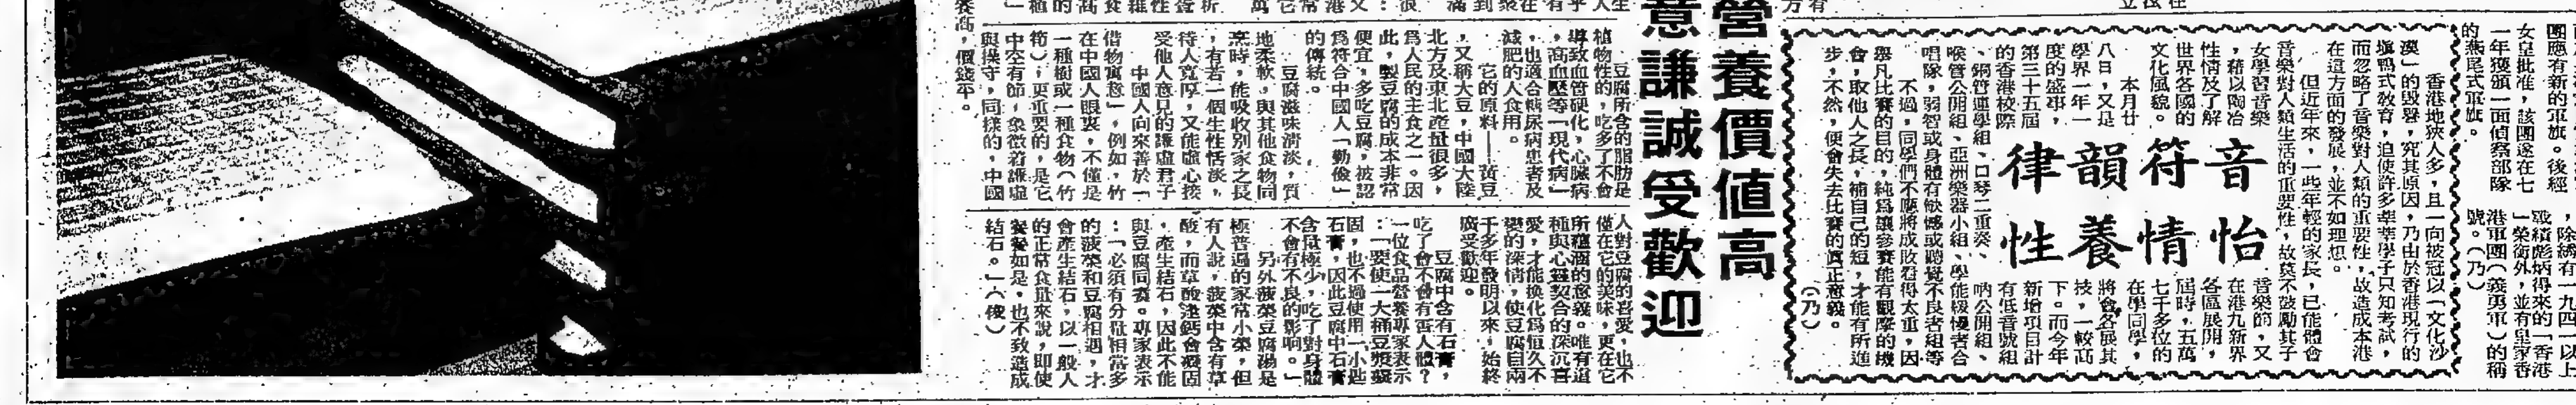 團應有新的軍旗。後經
女皇批准，該團遂在七
一年獲頒一面偵察部隊
的燕尾式軍旗。
，除繡有一九四一以上
戰績彪炳得來的「香港
」榮銜外，並有皇家香
港軍團（義勇軍）的稱
號。（乃）
音符韻律
怡情養性
香港地狹人多，且一向被冠以「文化沙
漠」的毀譽，究其原因，乃由於香港現行的
塡鴨式敎育，迫使許多莘莘學子只知考試，
而忽略了音樂對人類的重要性，故造成本港
在這方面的發展，並不如理想。
但近年來，一些年輕的家長，已能體會
音樂對人類生活的重要性，故莫不鼓勵其子
女學習音樂
，藉以陶冶
性情及了解
世界各國的
文化風貌。
本月廿
八日，又是
學界一年一
度的盛事，
第三十五屆
的香港校際
音樂節，又
在港九新界
各區展開，
屆時，五萬
七千多位的
在學同學，
將會各展其
技，一較高
下。而今年
新增項目計
有低音號組
、銅管連學組、口琴二重奏、吶公開組、
喉管公開組、亞洲樂器小組、學能緩慢者合
唱隊，弱智或身體有缺憾或聽覺不良者組等
不過，同學們不應將成敗看得太重，因
舉凡比賽的目的，純爲讓參賽能有觀摩的機
會，取他人之長，補自己的短，才能有所進
步，不然，便會失去比賽的眞正意義。
（乃）
營養價値高
意謙誠受歡迎
豆腐所含的脂肪是
植物性的，吃多了不會
導致血管硬化，心臟病
，高血壓等「現代病」
，也適合糖尿病患者及
減肥的人食用。
它的原料——黃豆
，又稱大豆，中國大陸
北方及東北產量很多，
爲人民的主食之一。因
此，製豆腐的成本非常
便宜，多吃豆腐，被認
爲符合中國人「勤儉」
的傳統。
豆腐滋味淸淡，質
地柔軟，與其他食物同
烹時，能吸收別家之長
，有若一個生性恬淡，
待人寬厚，又能虛心接
受他人意見的謙虛君子
中國人向來善於「
借物寓意」，例如，竹
在中國人眼裏，不僅是
一種樹或一種食物（竹
筍）；更重要的，是它
中空有節，象徵着謙虛
與操守，同樣的，中國
人對豆腐的喜愛，也不
僅在它的美味，更在它
所蘊涵的意義。唯有這
種與心靈契合的深沉喜
愛，才能換化爲恒久不
變的深情，使豆腐自兩
千多年發明以來，始終
廣受歡迎。
豆腐中含有石膏，
吃了會不會有害人體？
一位食品營養專家表示
：「要使一大桶豆漿凝
固，也不過使用一小匙
石膏，因此豆腐中石膏
含量極少，吃了對身體
不會有不良的影响。」
另外菠菜豆腐湯是
極普遍的家常小菜，但
有人說，菠菜中含有草
酸，而草酸塗鈣會凝固
，產生結石，因此不能
與豆腐同煮。專家表示
：「必須有分量相當多
的菠菜和豆腐相遇，才
會產生結石，以一般人
的正常食量來說，即使
餐餐如是，也不致造成
結石。」（俊）